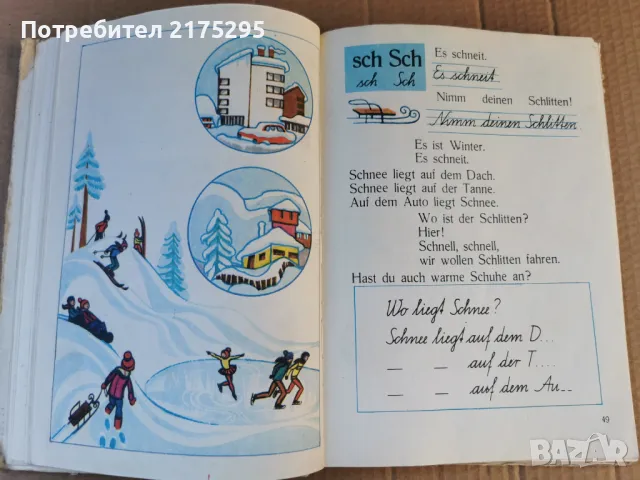 Потребител 2175295
sch Sch
sch Sch
Es schneit.
Es schneit
Nimm deinen Schlitten!
Nimm deinen Schlitten.
Es ist Winter.
Es schneit.
Schnee liegt auf dem Dach.
Schnee liegt auf der Tanne.
Auf dem Auto liegt Schnee.
Wo ist der Schlitten?
Hier!
Schnell, schnell,
wir wollen Schlitten fahren.
Hast du auch warme Schuhe an?
Wo liegt Schnee?
Schnee liegt auf dem D...
_ _ auf der T....
_ _ auf dem Au__
49
BAZAR